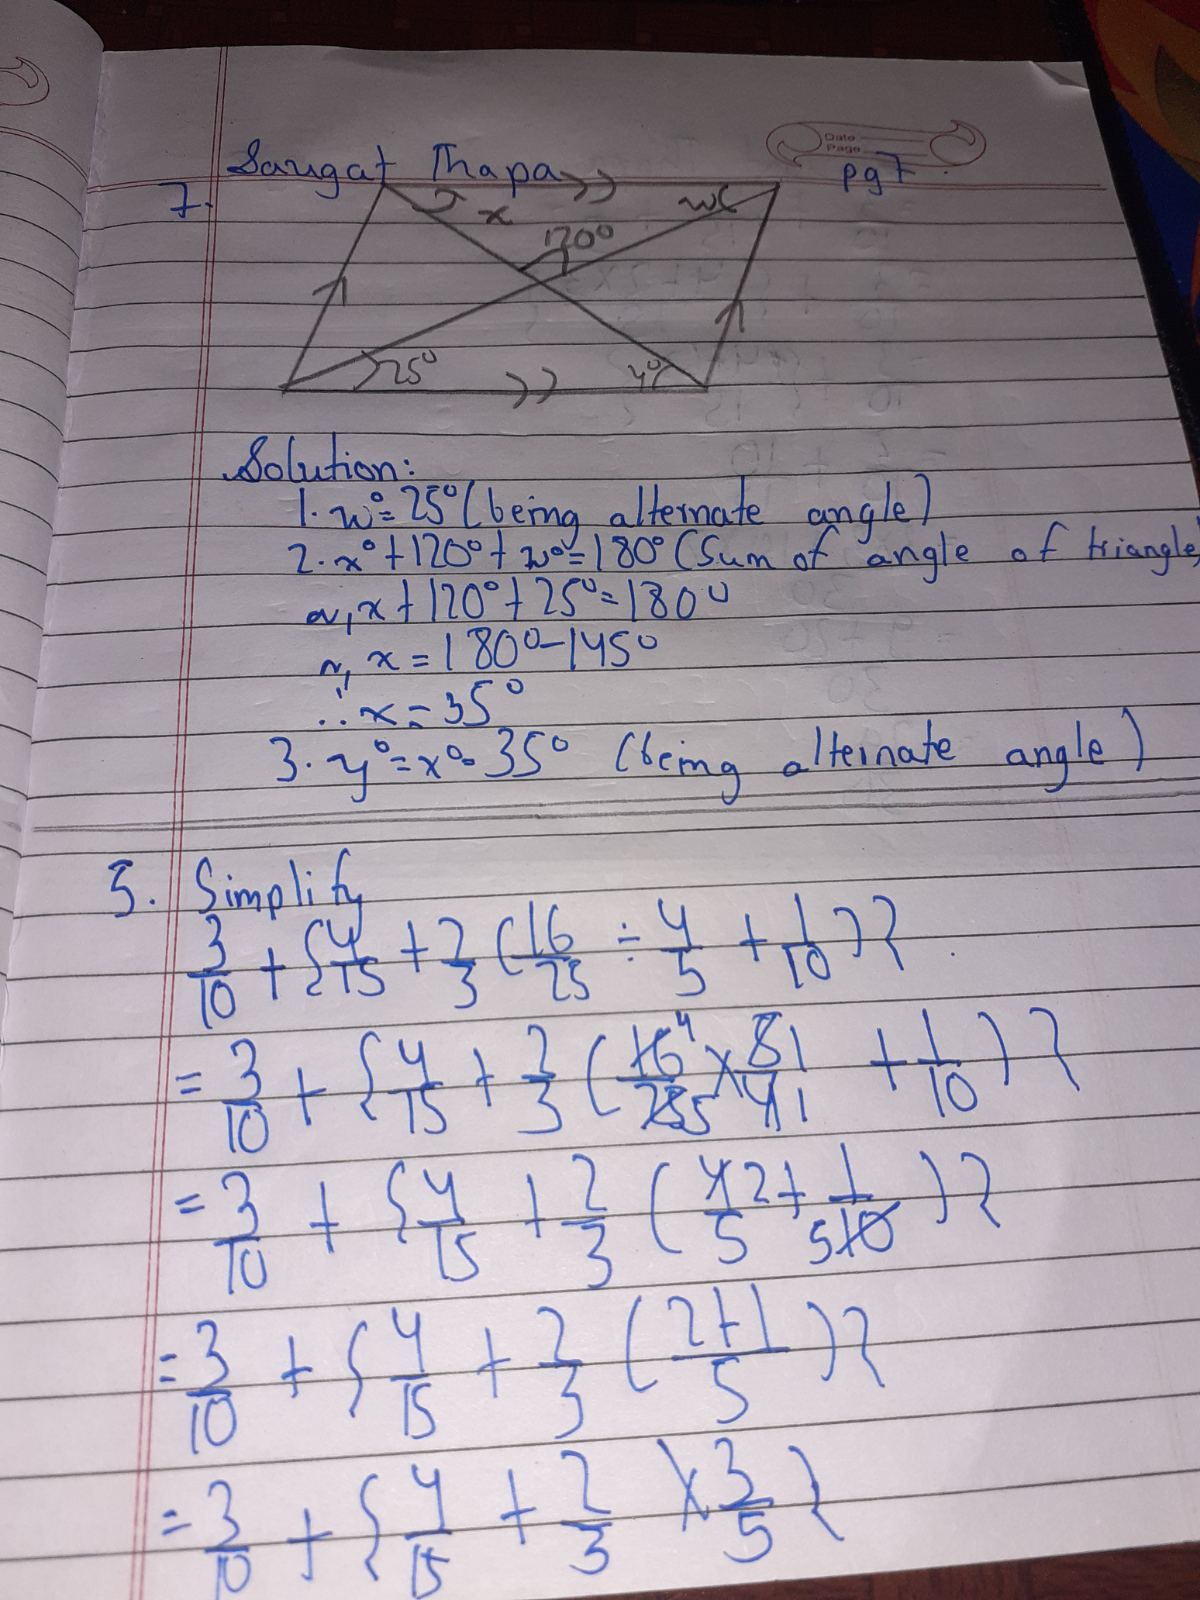 Date
Page
Saugat Thapa
pg 7
7.
x
w
120°
25°
y°
Solution:
1. w° = 25° (being alternate angle)
2. x° + 120° + w° = 180° (Sum of angle of triangle)
or, x + 120° + 25° = 180°
or, x = 180° - 145°
∴ x = 35°
3. y° = x° = 35° (being alternate angle)
5. Simplify
3/10 + {4/15 + 2/3 (16/25 ÷ 4/5 + 1/10)}
= 3/10 + {4/15 + 2/3 (16 4/25 5 × 5 1/4 1 + 1/10)}
= 3/10 + {4/15 + 2/3 (4 2/5 + 1/5 10)}
= 3/10 + {4/15 + 2/3 (2+1/5)}
= 3/10 + {4/15 + 2/3 × 3/5}